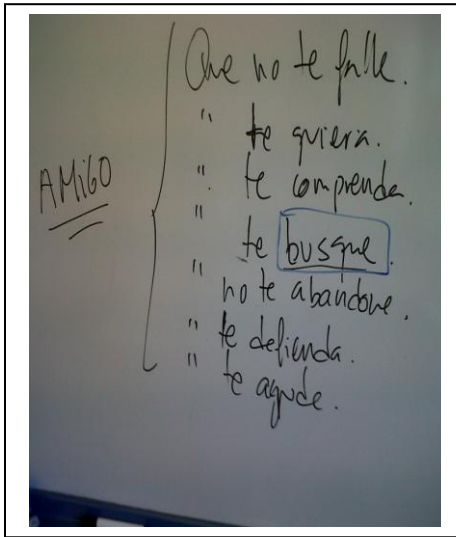 Que no te falle.
" te quiera.
AMiGO
" te comprenda.
" te busque.
" no te abandone.
" te defienda.
" te ayude.